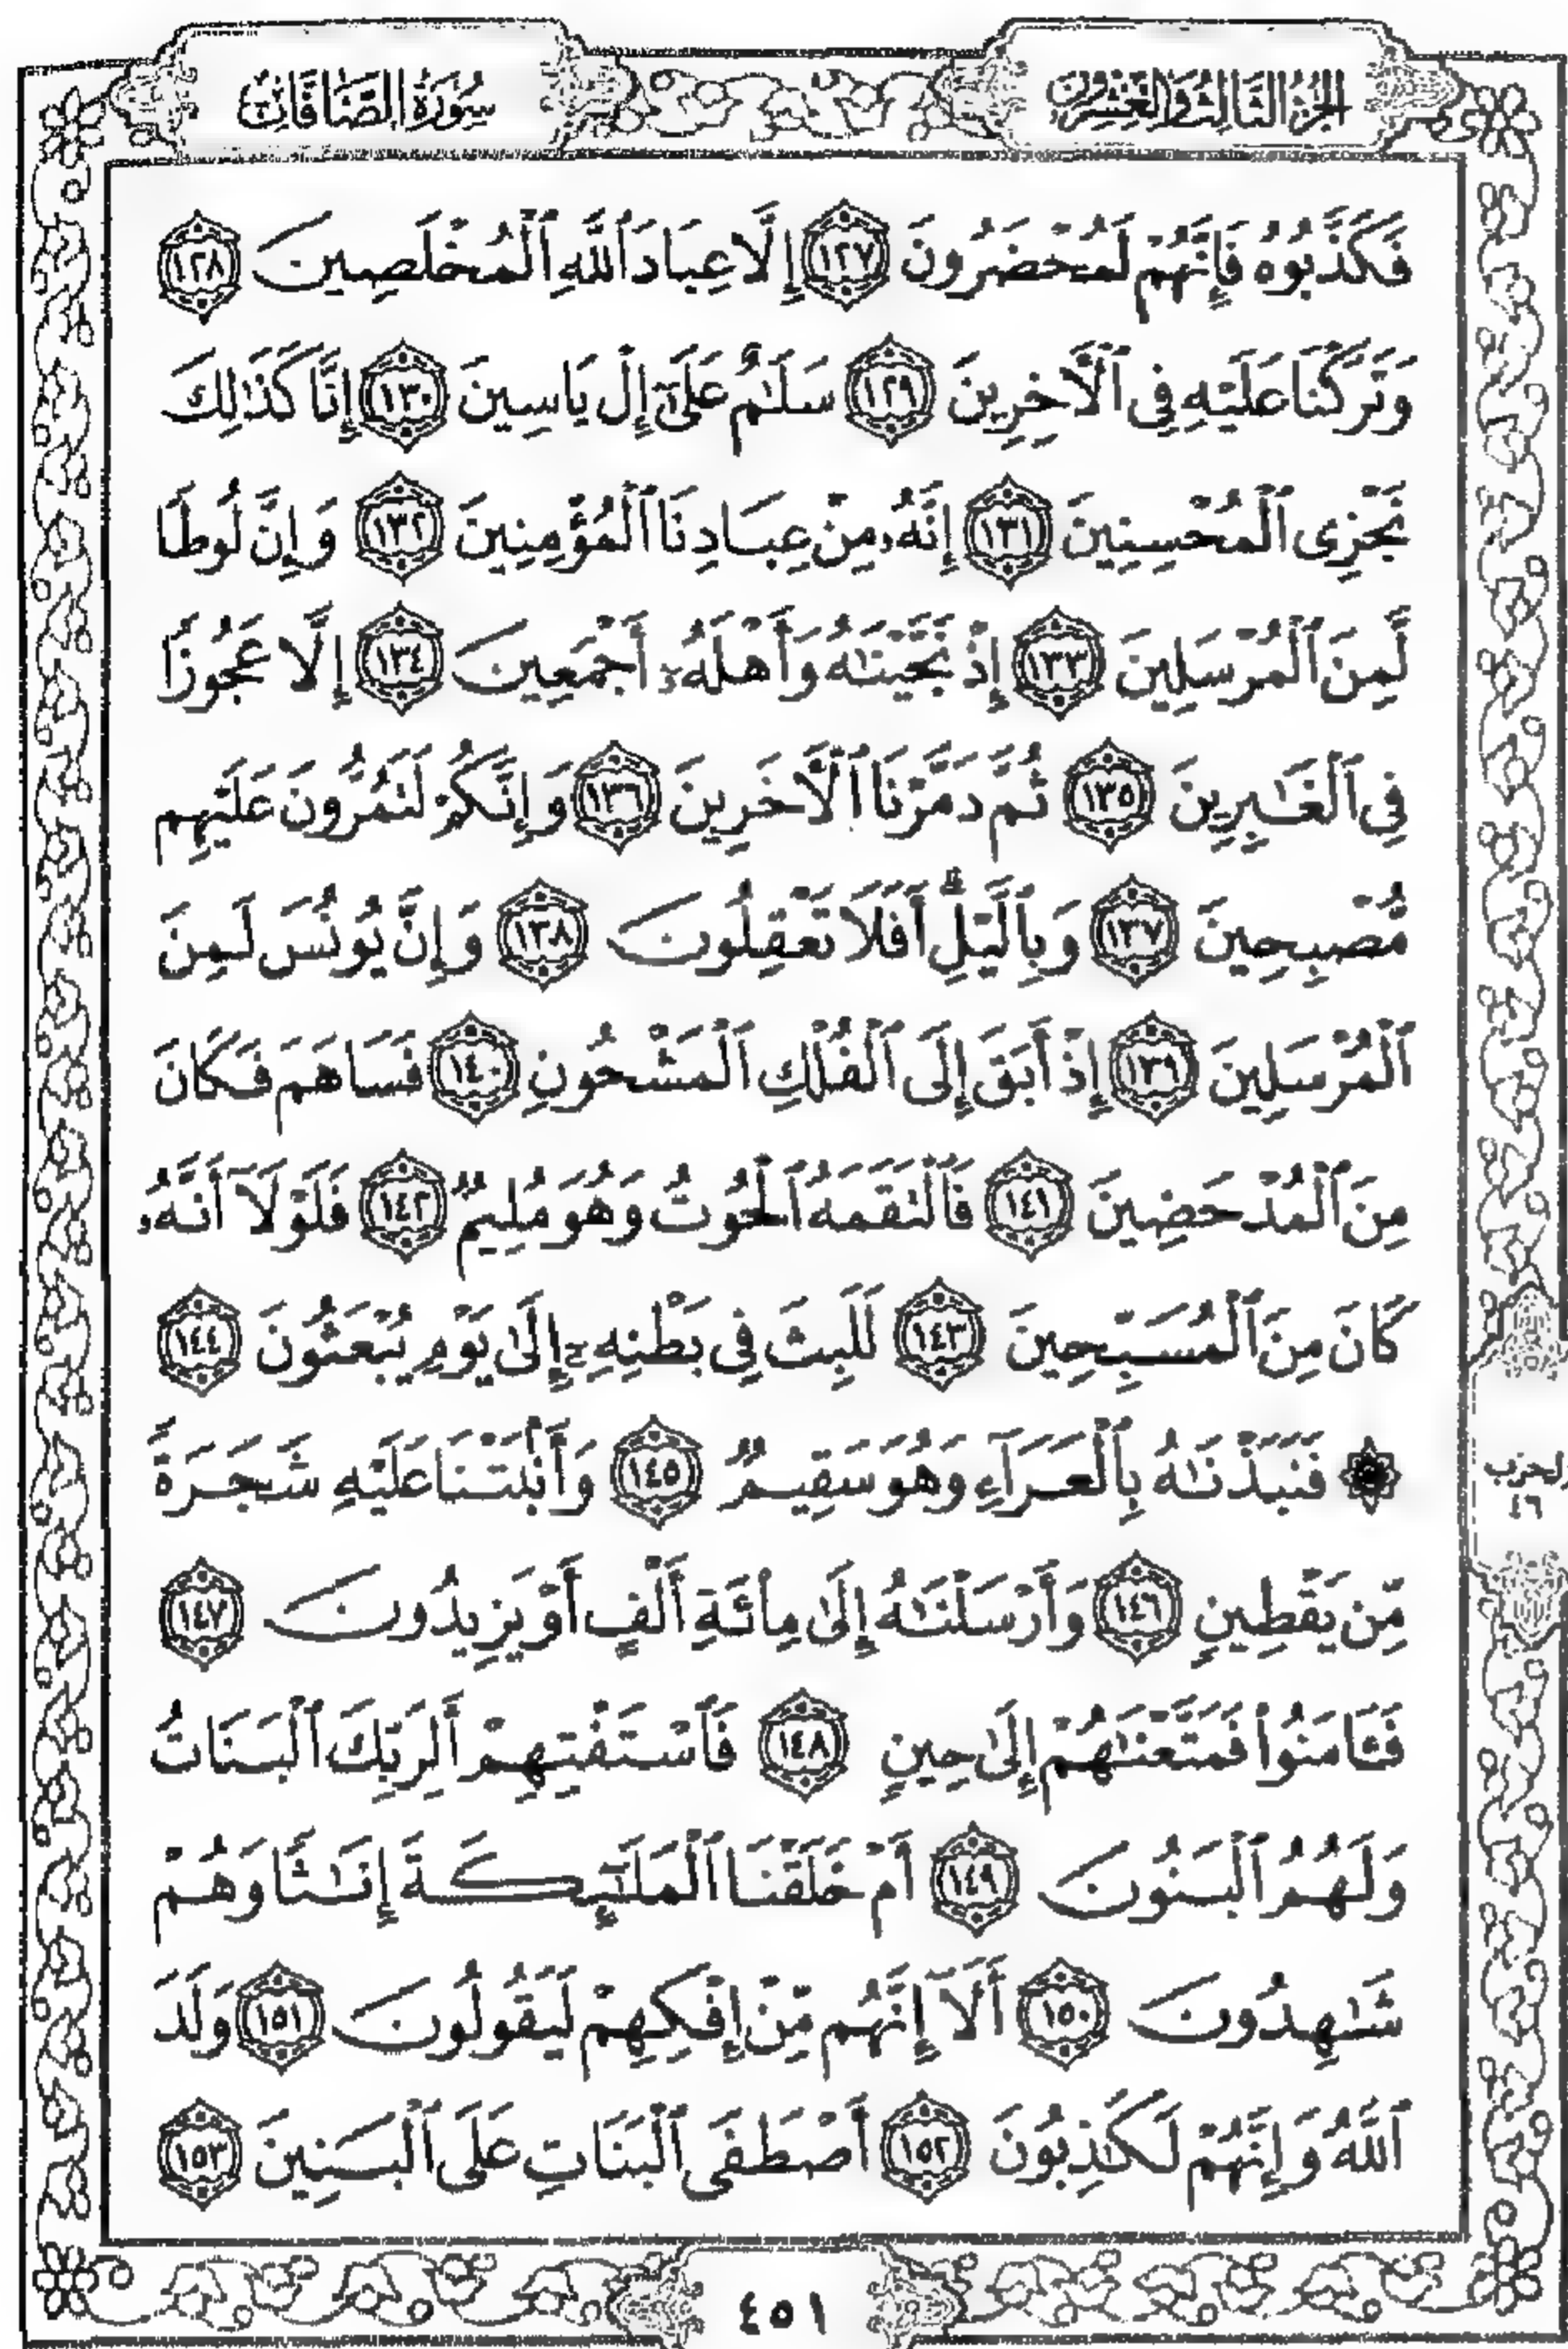 الجزء الثالث والعشرون
سورة الصافات
فَكَذَّبُوهُ فَإِنَّهُمْ لَمُحْضَرُونَ ١٢٧ إِلَّا عِبَادَ ٱللَّهِ ٱلْمُخْلَصِينَ ١٢٨
وَتَرَكْنَا عَلَيْهِ فِى ٱلْءَاخِرِينَ ١٢٩ سَلَٰمٌ عَلَىٰٓ إِلْ يَاسِينَ ١٣٠ إِنَّا كَذَٰلِكَ
نَجْزِى ٱلْمُحْسِنِينَ ١٣١ إِنَّهُۥ مِنْ عِبَادِنَا ٱلْمُؤْمِنِينَ ١٣٢ وَإِنَّ لُوطًا
لَّمِنَ ٱلْمُرْسَلِينَ ١٣٣ إِذْ نَجَّيْنَٰهُ وَأَهْلَهُۥٓ أَجْمَعِينَ ١٣٤ إِلَّا عَجُوزًا
فِى ٱلْغَٰبِرِينَ ١٣٥ ثُمَّ دَمَّرْنَا ٱلْءَاخَرِينَ ١٣٦ وَإِنَّكُمْ لَتَمُرُّونَ عَلَيْهِم
مُّصْبِحِينَ ١٣٧ وَبِٱلَّيْلِ ۗ أَفَلَا تَعْقِلُونَ ١٣٨ وَإِنَّ يُونُسَ لَمِنَ
ٱلْمُرْسَلِينَ ١٣٩ إِذْ أَبَقَ إِلَى ٱلْفُلْكِ ٱلْمَشْحُونِ ١٤٠ فَسَاهَمَ فَكَانَ
مِنَ ٱلْمُدْحَضِينَ ١٤١ فَٱلْتَقَمَهُ ٱلْحُوتُ وَهُوَ مُلِيمٌ ١٤٢ فَلَوْلَآ أَنَّهُۥ
كَانَ مِنَ ٱلْمُسَبِّحِينَ ١٤٣ لَلَبِثَ فِى بَطْنِهِۦٓ إِلَىٰ يَوْمِ يُبْعَثُونَ ١٤٤
۞ فَنَبَذْنَٰهُ بِٱلْعَرَآءِ وَهُوَ سَقِيمٌ ١٤٥ وَأَنۢبَتْنَا عَلَيْهِ شَجَرَةً
مِّن يَقْطِينٍ ١٤٦ وَأَرْسَلْنَٰهُ إِلَىٰ مِا۟ئَةِ أَلْفٍ أَوْ يَزِيدُونَ ١٤٧
فَـَٔامَنُوا۟ فَمَتَّعْنَٰهُمْ إِلَىٰ حِينٍ ١٤٨ فَٱسْتَفْتِهِمْ أَلِرَبِّكَ ٱلْبَنَاتُ
وَلَهُمُ ٱلْبَنُونَ ١٤٩ أَمْ خَلَقْنَا ٱلْمَلَٰٓئِكَةَ إِنَٰثًا وَهُمْ
شَٰهِدُونَ ١٥٠ أَلَآ إِنَّهُم مِّنْ إِفْكِهِمْ لَيَقُولُونَ ١٥١ وَلَدَ
ٱللَّهُ وَإِنَّهُمْ لَكَٰذِبُونَ ١٥٢ أَصْطَفَى ٱلْبَنَاتِ عَلَى ٱلْبَنِينَ ١٥٣
الحزب
٤٦
٤٥١